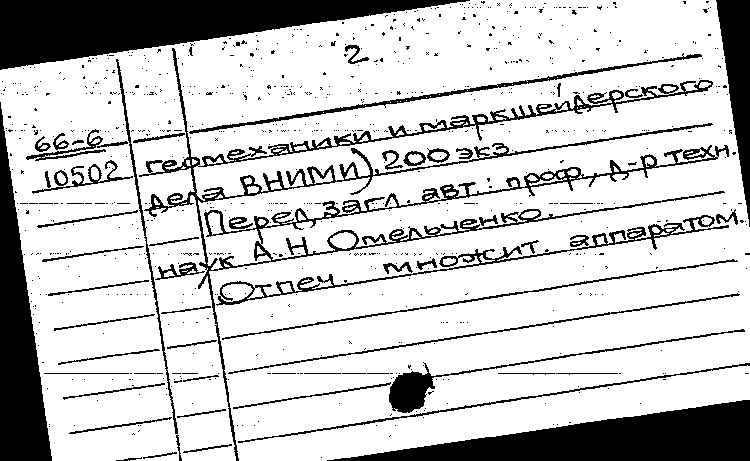 2
66-6
10502
геомеханики и маркшейдерского
дела ВНИМИ). 200 экз.
Перед загл. авт.: проф., д-р техн.
наук А.Н. Омельченко.
Отпеч. множит. аппаратом.